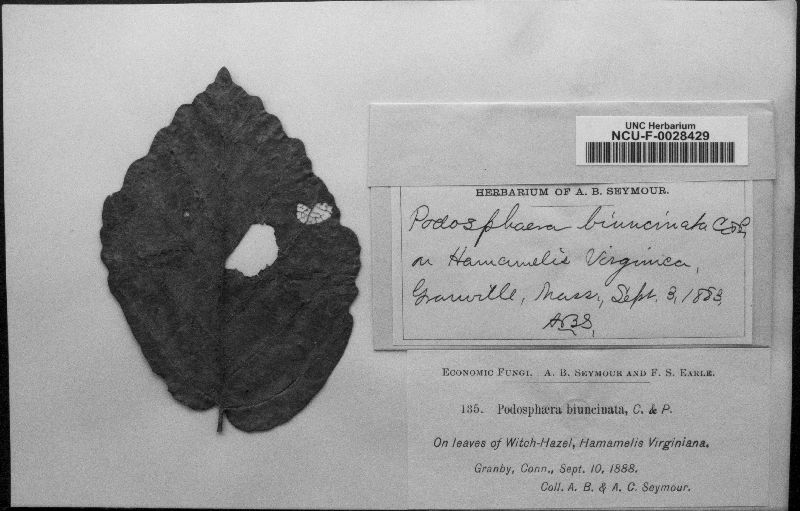 UNC Herbarium
NCU-F-0028429
HERBARIUM OF A. B. SEYMOUR.
Podosphaera biuncinata C&P,
on Hamamelis Virginica,
Granville, Mass., Sept. 3, 1883,
ABS,
ECONOMIC FUNGI. A. B. SEYMOUR AND F. S. EARLE.
135. Podosphæra biuncinata, C. & P.
On leaves of Witch-Hazel, Hamamelis Virginiana.
Granby, Conn., Sept. 10, 1888.
Coll. A. B. & A. C. Seymour.